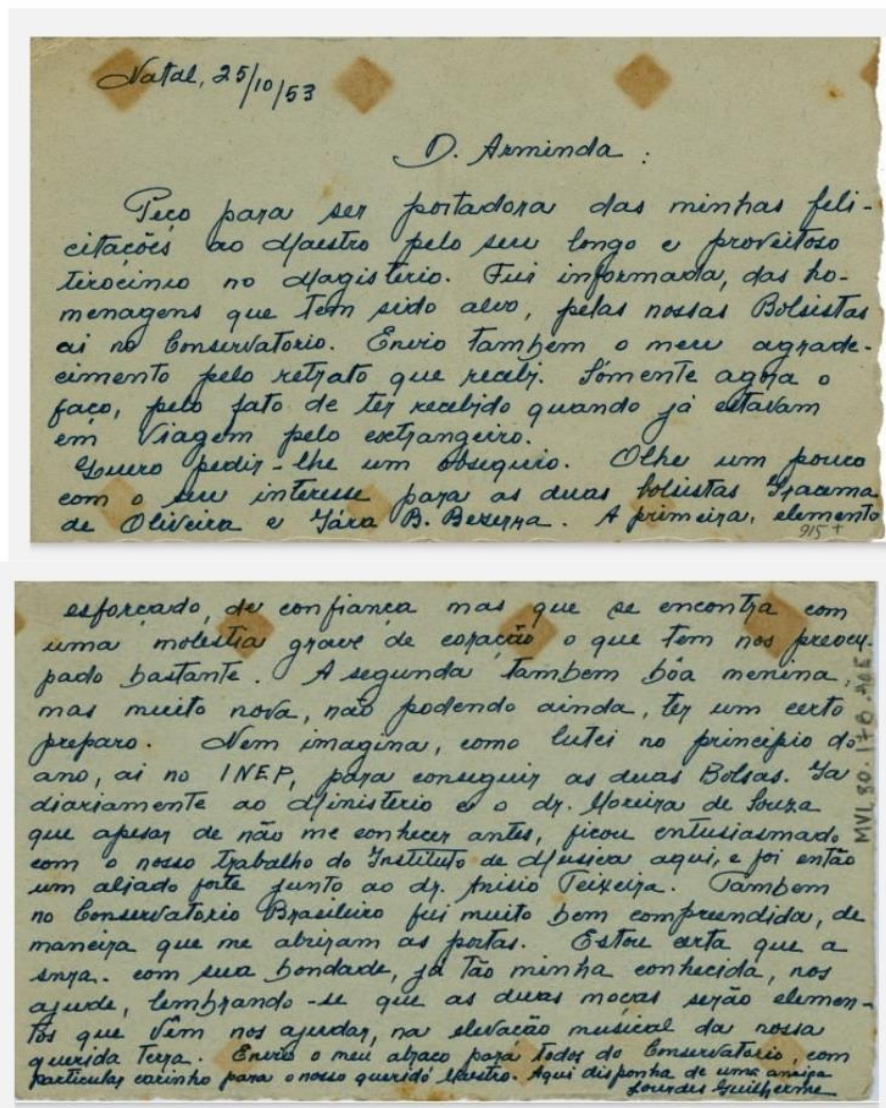 Natal, 25/10/53
D. Arminda:
Peço para ser portadora das minhas feli-
citações ao Maestro pelo seu longo e proveitoso
tirocinio no Magistério. Fui informada, das ho-
menagens que tem sido alvo, pelas nossas Bolsistas
ai no Conservatorio. Envio também o meu agrade-
cimento pelo retrato que recebi. Sómente agora o
faço, pelo fato de ter recebido quando já estavam
em viagem pelo extrangeiro.
Quero pedir-lhe um obsequio. Olhe um pouco
com o seu interesse para as duas bolsistas Iracema
de Oliveira e Yára B. Bezerra. A primeira, elemento
915+
esforçado, de confiança mas que se encontra com
uma molestia grave de coração o que tem nos preocu-
pado bastante. A segunda tambem bôa menina,
mas muito nova, não podendo ainda, ter um certo
preparo. Nem imagina, como lutei no principio do
ano, ai no INEP, para conseguir as duas Bolsas. Ia
diariamente ao Ministerio e o dr. Moreira de Souza
que apesar de não me conhecer antes, ficou entusiasmado
com o nosso trabalho do Instituto de Musica aqui, e foi então
um aliado forte junto ao dr. Anisio Teixeira. Tambem
no Conservatorio Brasileiro fui muito bem compreendida, de
maneira que me abriram as portas. Estou certa que a
snra. com sua bondade, já tão minha conhecida, nos
ajude, lembrando-se que as duas moças serão elemen-
tos que vêm nos ajudar, na elevação musical da nossa
querida Terra. Envio o meu abraço para todos do Conservatorio, com
particular carinho para o nosso querido Maestro. Aqui disponha de uma amiga
Lourdes Guilherme